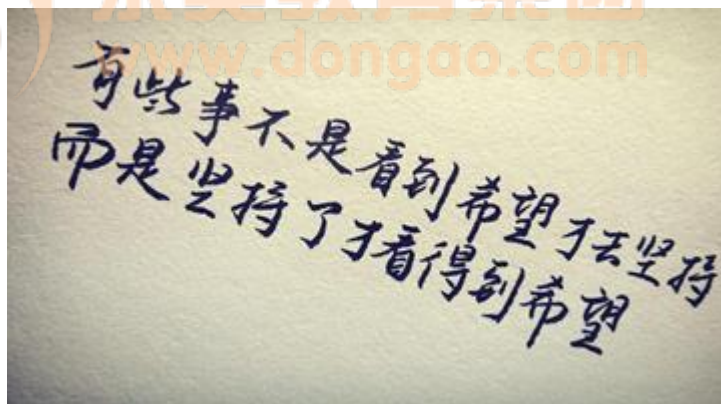 www.dongao.com
有些事不是看到希望才去坚持
而是坚持了才看得到希望